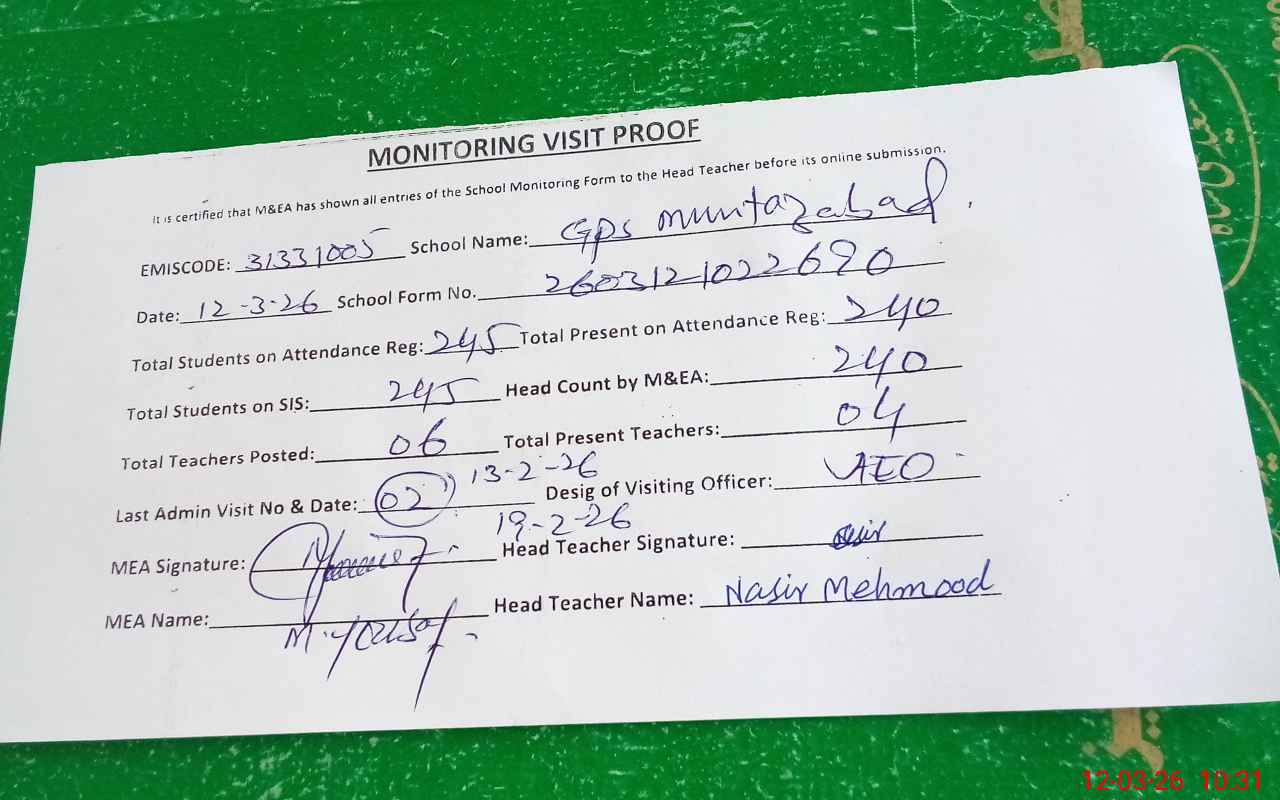 MONITORING VISIT PROOF
It is certified that M&EA has shown all entries of the School Monitoring Form to the Head Teacher before its online submission.
EMISCODE: 31331005 School Name: GPS Muntazabad
Date: 12-3-26 School Form No. 2603121022690
Total Students on Attendance Reg: 245 Total Present on Attendance Reg: 240
Total Students on SIS: 245 Head Count by M&EA: 240
Total Teachers Posted: 06 Total Present Teachers: 04
Last Admin Visit No & Date: 02 13-2-26 19-2-26 Desig of Visiting Officer: AEO
MEA Signature: Head Teacher Signature: Nasir
MEA Name: M. Yousaf Head Teacher Name: Nasir Mehmood
12-03-26 10:31